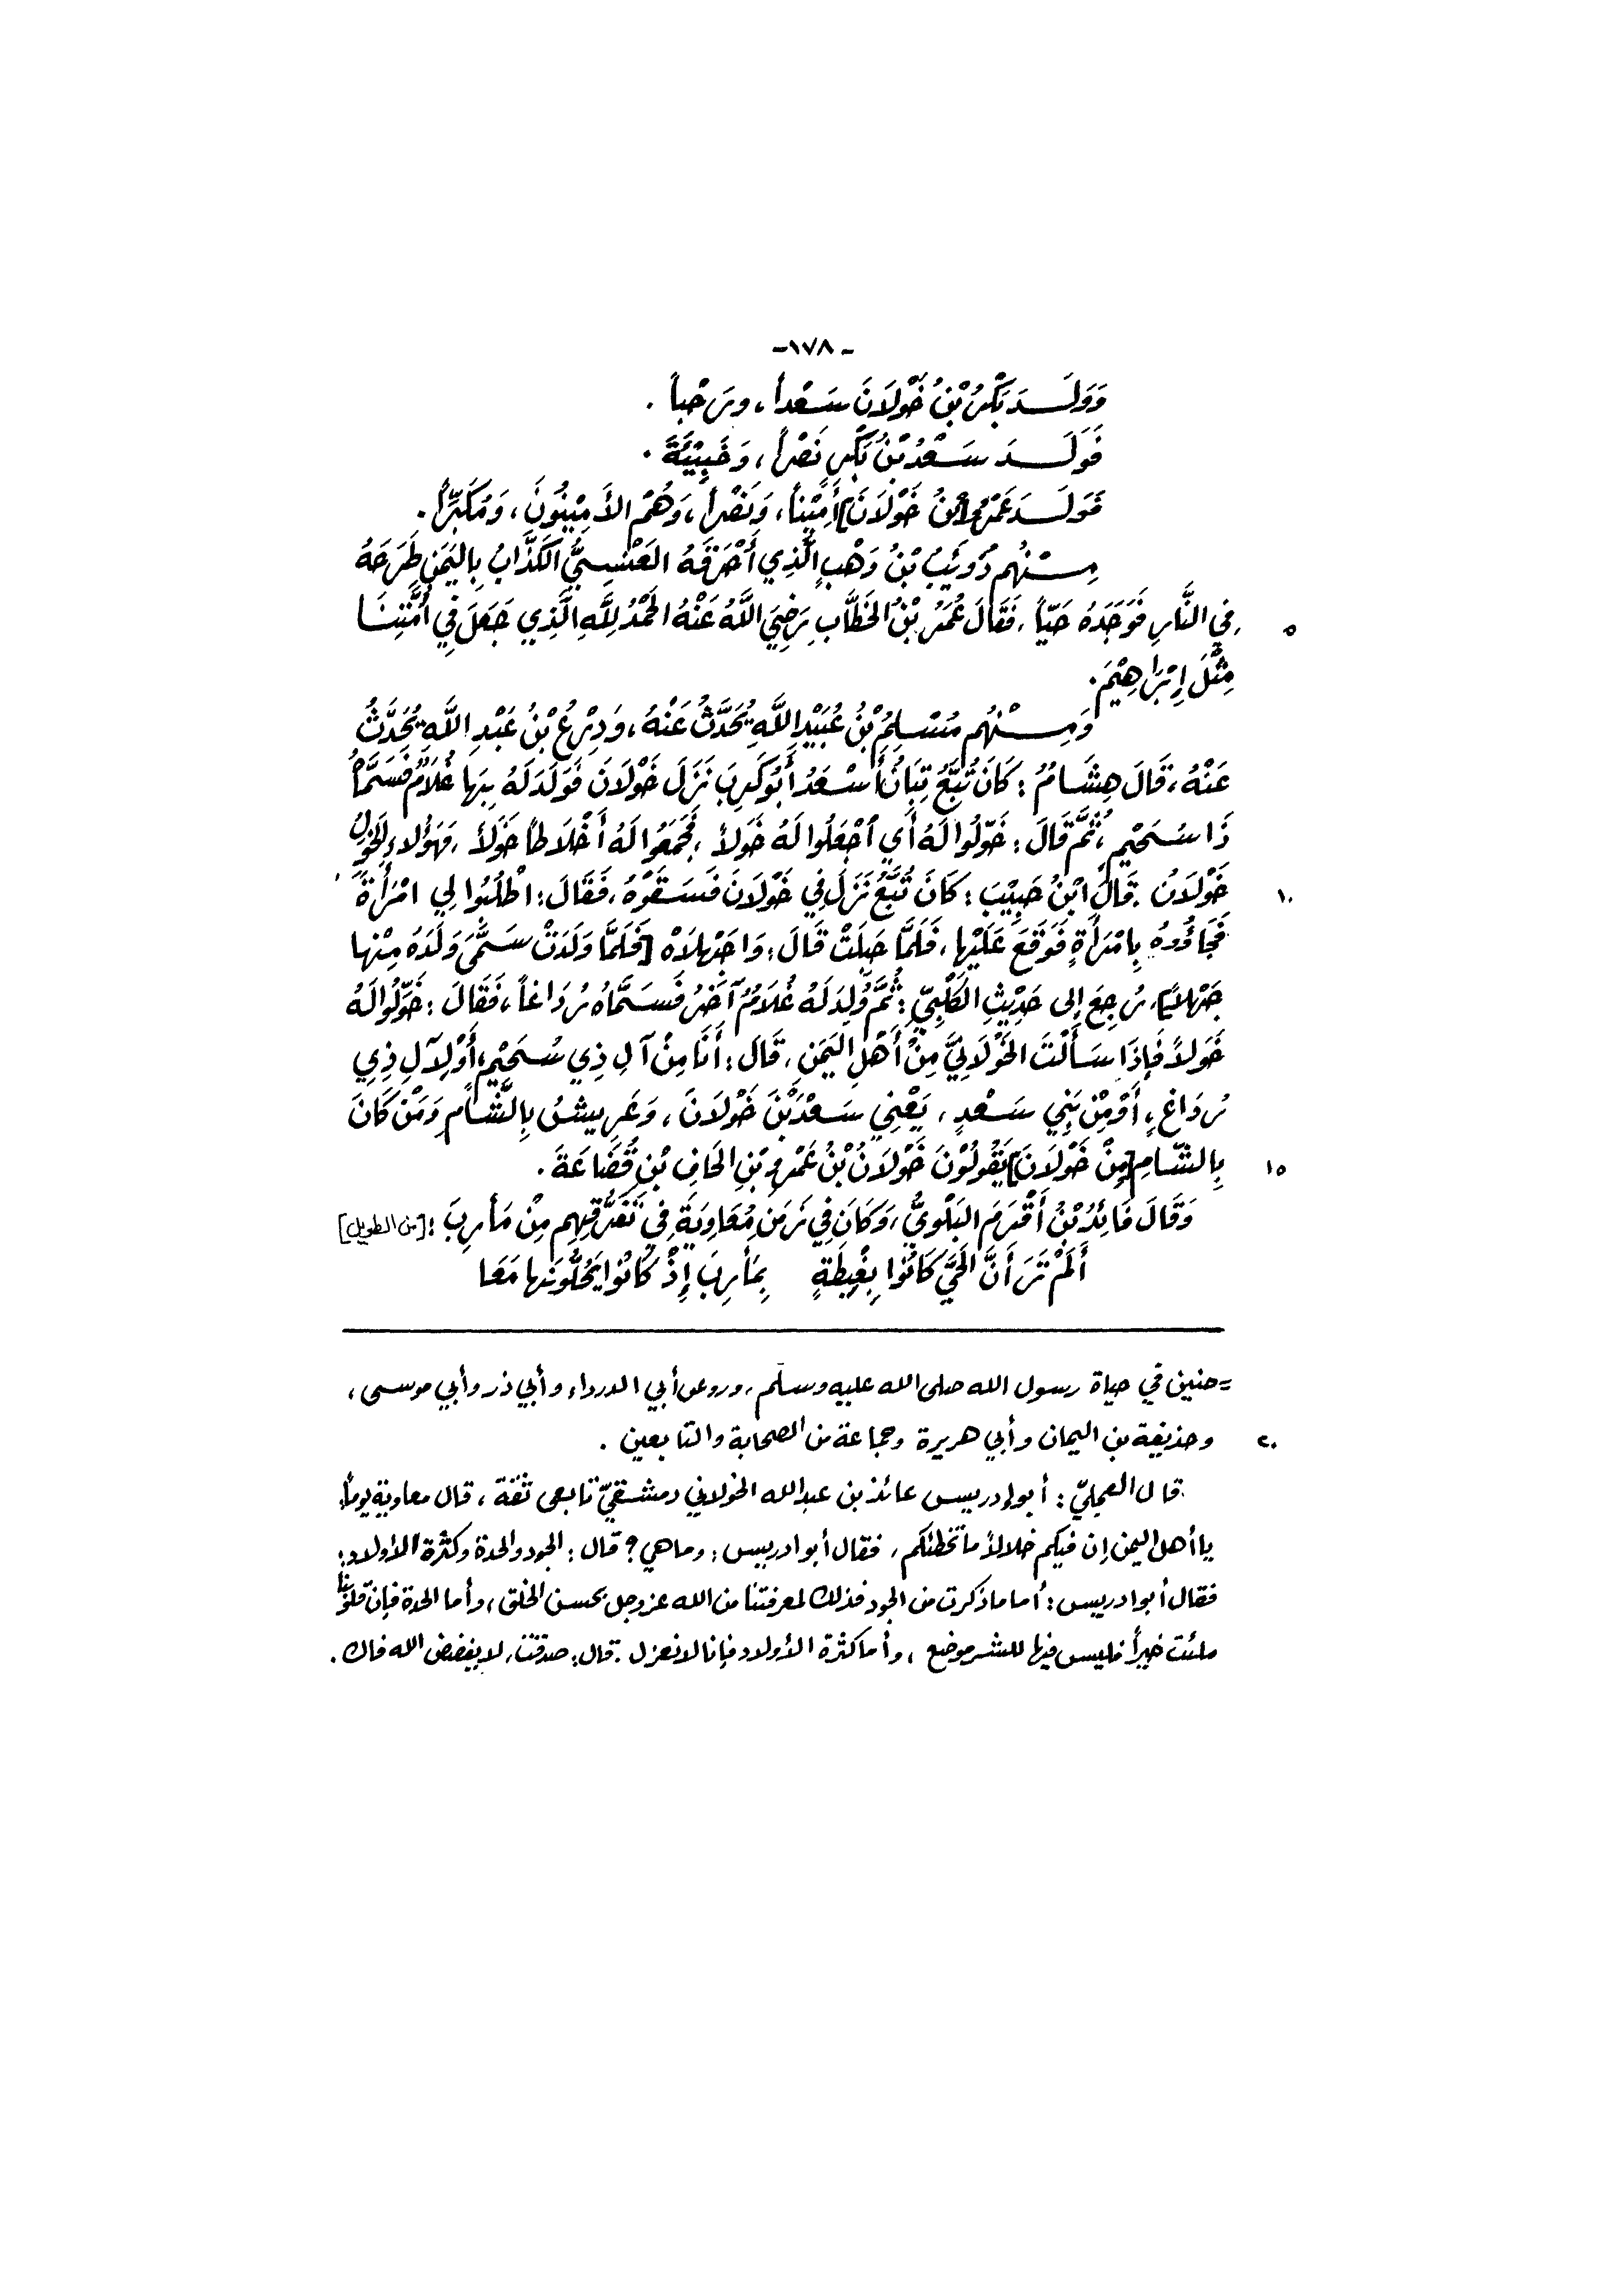 -١٧٨-
وَوَلَدَ بَكْرُ بْنُ خَوْلَانَ سَعْداً، وَرَحْباً.
فَوَلَدَ سَعْدُ بْنُ بَكْرٍ نَصْراً، وَخَبِيْئَةً.
فَوَلَدَ عَمْرُو [بْنُ خَوْلَانَ] أَمِيْناً، وَنَصْراً، وَهُمْ الأَمِيْنُونَ، وَمُكَبِّراً.
مِنْهُم ذُوَيْبُ بْنُ وَهْبٍ الَّذِي أَحْرَقَهُ العَنْسِيُّ الكَذَّابُ بِاليَمَنِ طَرَحَهُ
٥ فِي النَّارِ فَوَجَدَهُ حَيّاً، فَقَالَ عُمَرُ بْنُ الخَطَّابِ رَضِيَ اللَّهُ عَنْهُ الحَمْدُ لِلَّهِ الَّذِي جَعَلَ فِي أُمَّتِنَا
مِثْلَ إِبْرَاهِيْمَ.
وَمِنْهُم مُسْلِمُ بْنُ عُبَيْدِ اللَّهِ يُحَدَّثُ عَنْهُ، وَدِرْعُ بْنُ عَبْدِ اللَّهِ يُحَدَّثُ
عَنْهُ، قَالَ هِشَامُ: كَانَ تُبَّعُ تِبَانُ أَسْعَدُ أَبُو كَرِبَ نَزَلَ خَوْلَانَ فَوَلَدَ لَهُ بِهَا غُلَامٌ فَسَمَّاهُ
ذَا سُحَيْمٍ، ثُمَّ قَالَ: خَوِّلُوا لَهُ أَي اجْعَلُوا لَهُ خَوَلاً، فَجَمَعُوا لَهُ أَخْلَاطاً خَوَلاً، فَهَؤُلاءِ الخَوَلُ
١٠ خَوْلَانُ. قَالَ ابْنُ حَبِيْبَ: كَانَ تُبَّعُ نَزَلَ فِي خَوْلَانَ فَسَقَوْهُ، فَقَالَ: اطْلُبُوا لِي امْرَأَةً
فَجَاؤُوهُ بِامْرَأَةٍ فَوَقَعَ عَلَيْهَا، فَلَمَّا حَبَلَتْ قَالَ: وَاجَهْلَاهْ [فَلَمَّا وَلَدَتْ سَمَّى وَلَدَهُ مِنْهَا
جَهْلاً]، رُجِعَ إِلى حَدِيْثِ الكَلْبِيِّ: ثُمَّ وُلِدَ لَهُ غُلَامٌ آخَرُ فَسَمَّاهُ رُدَاغاً، فَقَالَ: خَوِّلُوا لَهُ
خَوَلاً فَإِذَا سَأَلْتَ الخَوْلَانِيَّ مِنْ أَهْلِ اليَمَنِ، قَالَ: أَنَا مِنْ آلِ ذِي سُحَيْمٍ، أَوْ لِآلِ ذِي
رُدَاغٍ، أَوْ مِنْ بَنِي سَعْدٍ، يَعْنِي سَعْدَ بْنَ خَوْلَانَ، وَعَرِيشُ بِالشَّامِ وَمَنْ كَانَ
١٥ بِالشَّامِ [مِنْ خَوْلَانَ] يَقُولُوْنَ خَوْلَانُ بْنُ عَمْرِو بْنِ الحَافِ بْنِ قُضَاعَةَ.
وَقَالَ فَائِدُ بْنُ أَقْرَمَ البَلْوِيُّ، وَكَانَ فِي زَمَنِ مُعَاوِيَةَ فِي تَفَرُّقِهِم مِنْ مَأْرِبَ: [من الطويل]
أَلَمْ تَرَ أَنَّ الحَيَّ كَانُوا بِغِبْطَةٍ بِمَأْرِبَ إِذْ كَانُوا يَحُلُّونَهَا مَعَا
= حنين في حياة رسول الله صلى الله عليه وسلم، وروى عن أبي الدرداء وأبي ذر وأبي موسى،
٢٠ وحذيفة بن اليمان وأبي هريرة وجماعة من الصحابة والتابعين.
قال العجليّ: أبو إدريس عائذ بن عبد الله الخولاني دمشقيّ تابعي ثقة، قال معاوية يوماً:
يا أهل اليمن إن فيكم خلالاً ما تخطئكم، فقال أبو ادريس: وما هي؟ قال: الجود والحدة وكثرة الأولاد:
فقال أبو ادريس: أما ما ذكرت من الجود فذلك لمعرفتنا من الله عز وجل بحسن الخلق، وأما الحدة فإنّ قلوبنا
ملئت خيراً فليس فيها للشر موضع، وأما كثرة الأولاد فإنا لا نعزل. قال: صدقت، لا يفضض الله فاك.